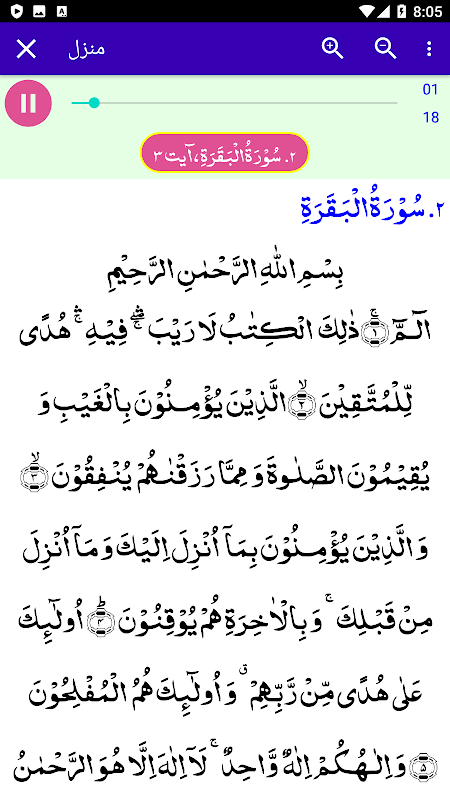 8:05
منزل
01
18
۲. سُوْرَةُ الْبَقَرَةِ، آیت ۳
۲. سُوْرَةُ الْبَقَرَةِ
بِسْمِ اللهِ الرَّحْمٰنِ الرَّحِيْمِ
الٓـمّٓ ۚ﴿۱﴾ ذٰلِكَ الْكِتٰبُ لَا رَيْبَ ۛۖۚ فِيْهِ ۛۚ هُدًى
لِّلْمُتَّقِيْنَ ۙ﴿۲﴾ الَّذِيْنَ يُؤْمِنُوْنَ بِالْغَيْبِ وَ
يُقِيْمُوْنَ الصَّلٰوةَ وَ مِمَّا رَزَقْنٰهُمْ يُنْفِقُوْنَ ۙ﴿۳﴾
وَ الَّذِيْنَ يُؤْمِنُوْنَ بِمَآ اُنْزِلَ اِلَيْكَ وَ مَآ اُنْزِلَ
مِنْ قَبْلِكَ ۚ وَ بِالْاٰخِرَةِ هُمْ يُوْقِنُوْنَ ؕ﴿۴﴾ اُولٰٓئِكَ
عَلٰى هُدًى مِّنْ رَّبِّهِمْ ۗ وَ اُولٰٓئِكَ هُمُ الْمُفْلِحُوْنَ
﴿۵﴾ وَ اِلٰـهُكُمْ اِلٰهٌ وَّاحِدٌ ۚ لَآ اِلٰهَ اِلَّا هُوَ الرَّحْمٰنُ